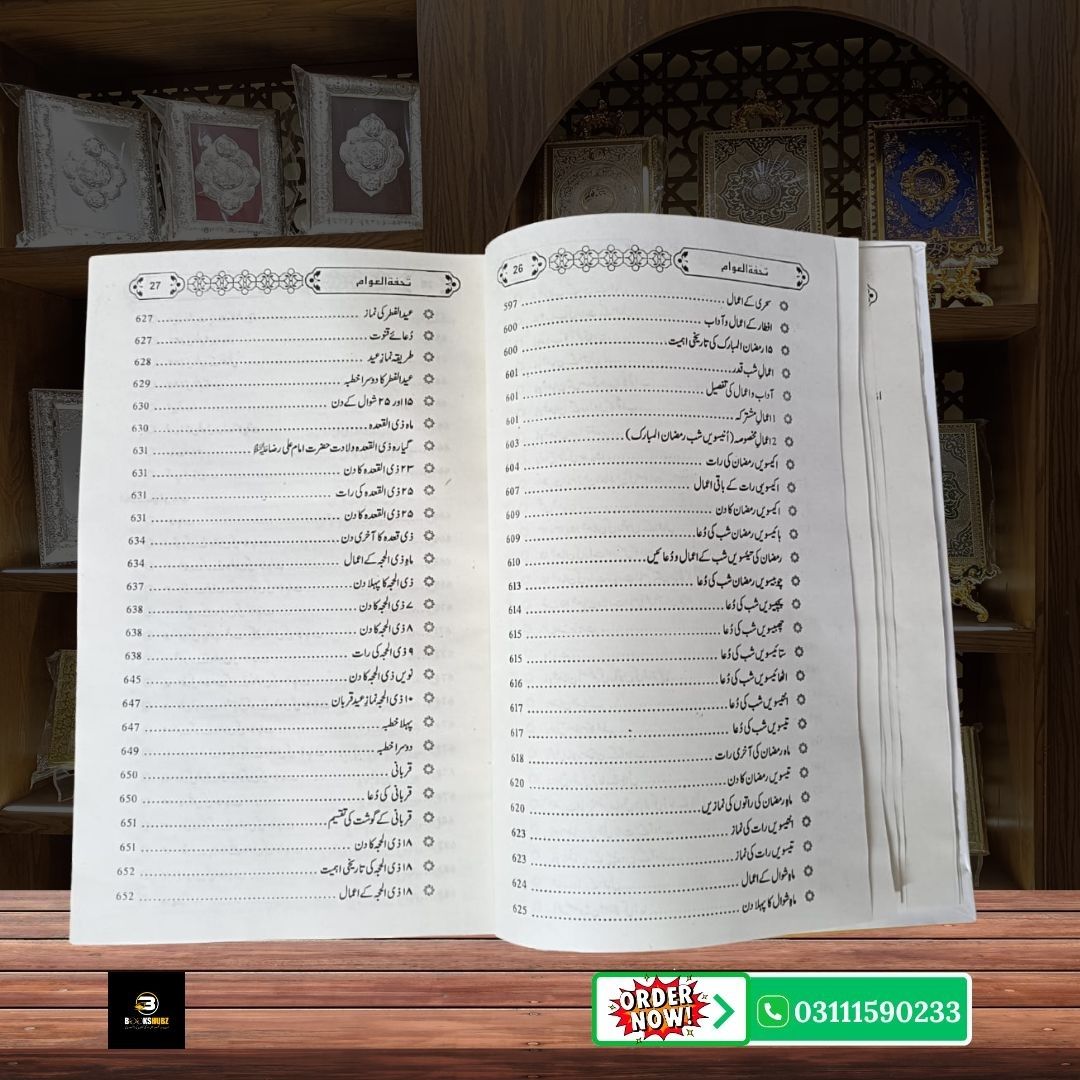 26
تحفۃ العوام
سحری کے اعمال 597
افطار کے اعمال و آداب 600
۱۵ رمضان المبارک کی تاریخی اہمیت 600
اعمالِ شب قدر 601
آداب و اعمال کی تفصیل 601
1 اعمال مشترکہ 601
2 اعمال مخصوصہ (اُنیسویں شب رمضان المبارک) 603
اکیسویں رمضان کی رات 604
اکیسویں رات کے باقی اعمال 607
اکیسویں رمضان کا دن 609
بائیسویں رمضان شب کی دُعا 609
رمضان کی تیئسویں شب کے اعمال و دُعائیں 610
چوبیسویں رمضان شب کی دُعا 613
پچیسویں شب کی دُعا 614
چھبیسویں شب کی دُعا 615
ستائیسویں شب کی دُعا 615
اٹھائیسویں شب کی دُعا 616
انتیسویں شب کی دُعا 617
تیسویں شب کی دُعا 617
ماہ رمضان کی آخری رات 618
تیسویں رمضان کا دن 620
ماہ رمضان کی راتوں کی نمازیں 620
انتیسویں رات کی نماز 623
تیسویں رات کی نماز 623
ماہ شوال کے اعمال 624
ماہ شوال کا پہلا دن 625
27
تحفۃ العوام
عید الفطر کی نماز 627
دُعائے قنوت 627
طریقہ نماز عید 628
عید الفطر کا دوسرا خطبہ 629
۱۵ اور ۲۵ شوال کے دن 630
ماہ ذی القعدہ 630
گیارہ ذی القعدہ ولادت حضرت امام علی رضا 631
۲۳ ذی القعدہ کا دن 631
۲۵ ذی القعدہ کی رات 631
۲۵ ذی القعدہ کا دن 631
ذی قعدہ کا آخری دن 634
ماہ ذی الحجہ کے اعمال 634
ذی الحجہ کا پہلا دن 637
۷ ذی الحجہ کا دن 638
۸ ذی الحجہ کا دن 638
۹ ذی الحجہ کی رات 638
نویں ذی الحجہ کا دن 645
۱۰ ذی الحجہ نمازِ عید قربان 647
پہلا خطبہ 647
دوسرا خطبہ 649
قربانی 650
قربانی کی دُعا 650
قربانی کے گوشت کی تقسیم 651
۱۸ ذی الحجہ کا دن 651
۱۸ ذی الحجہ کی تاریخی اہمیت 652
۱۸ ذی الحجہ کے اعمال 652
BOOKSHUBZ
ORDER NOW!
03111590233